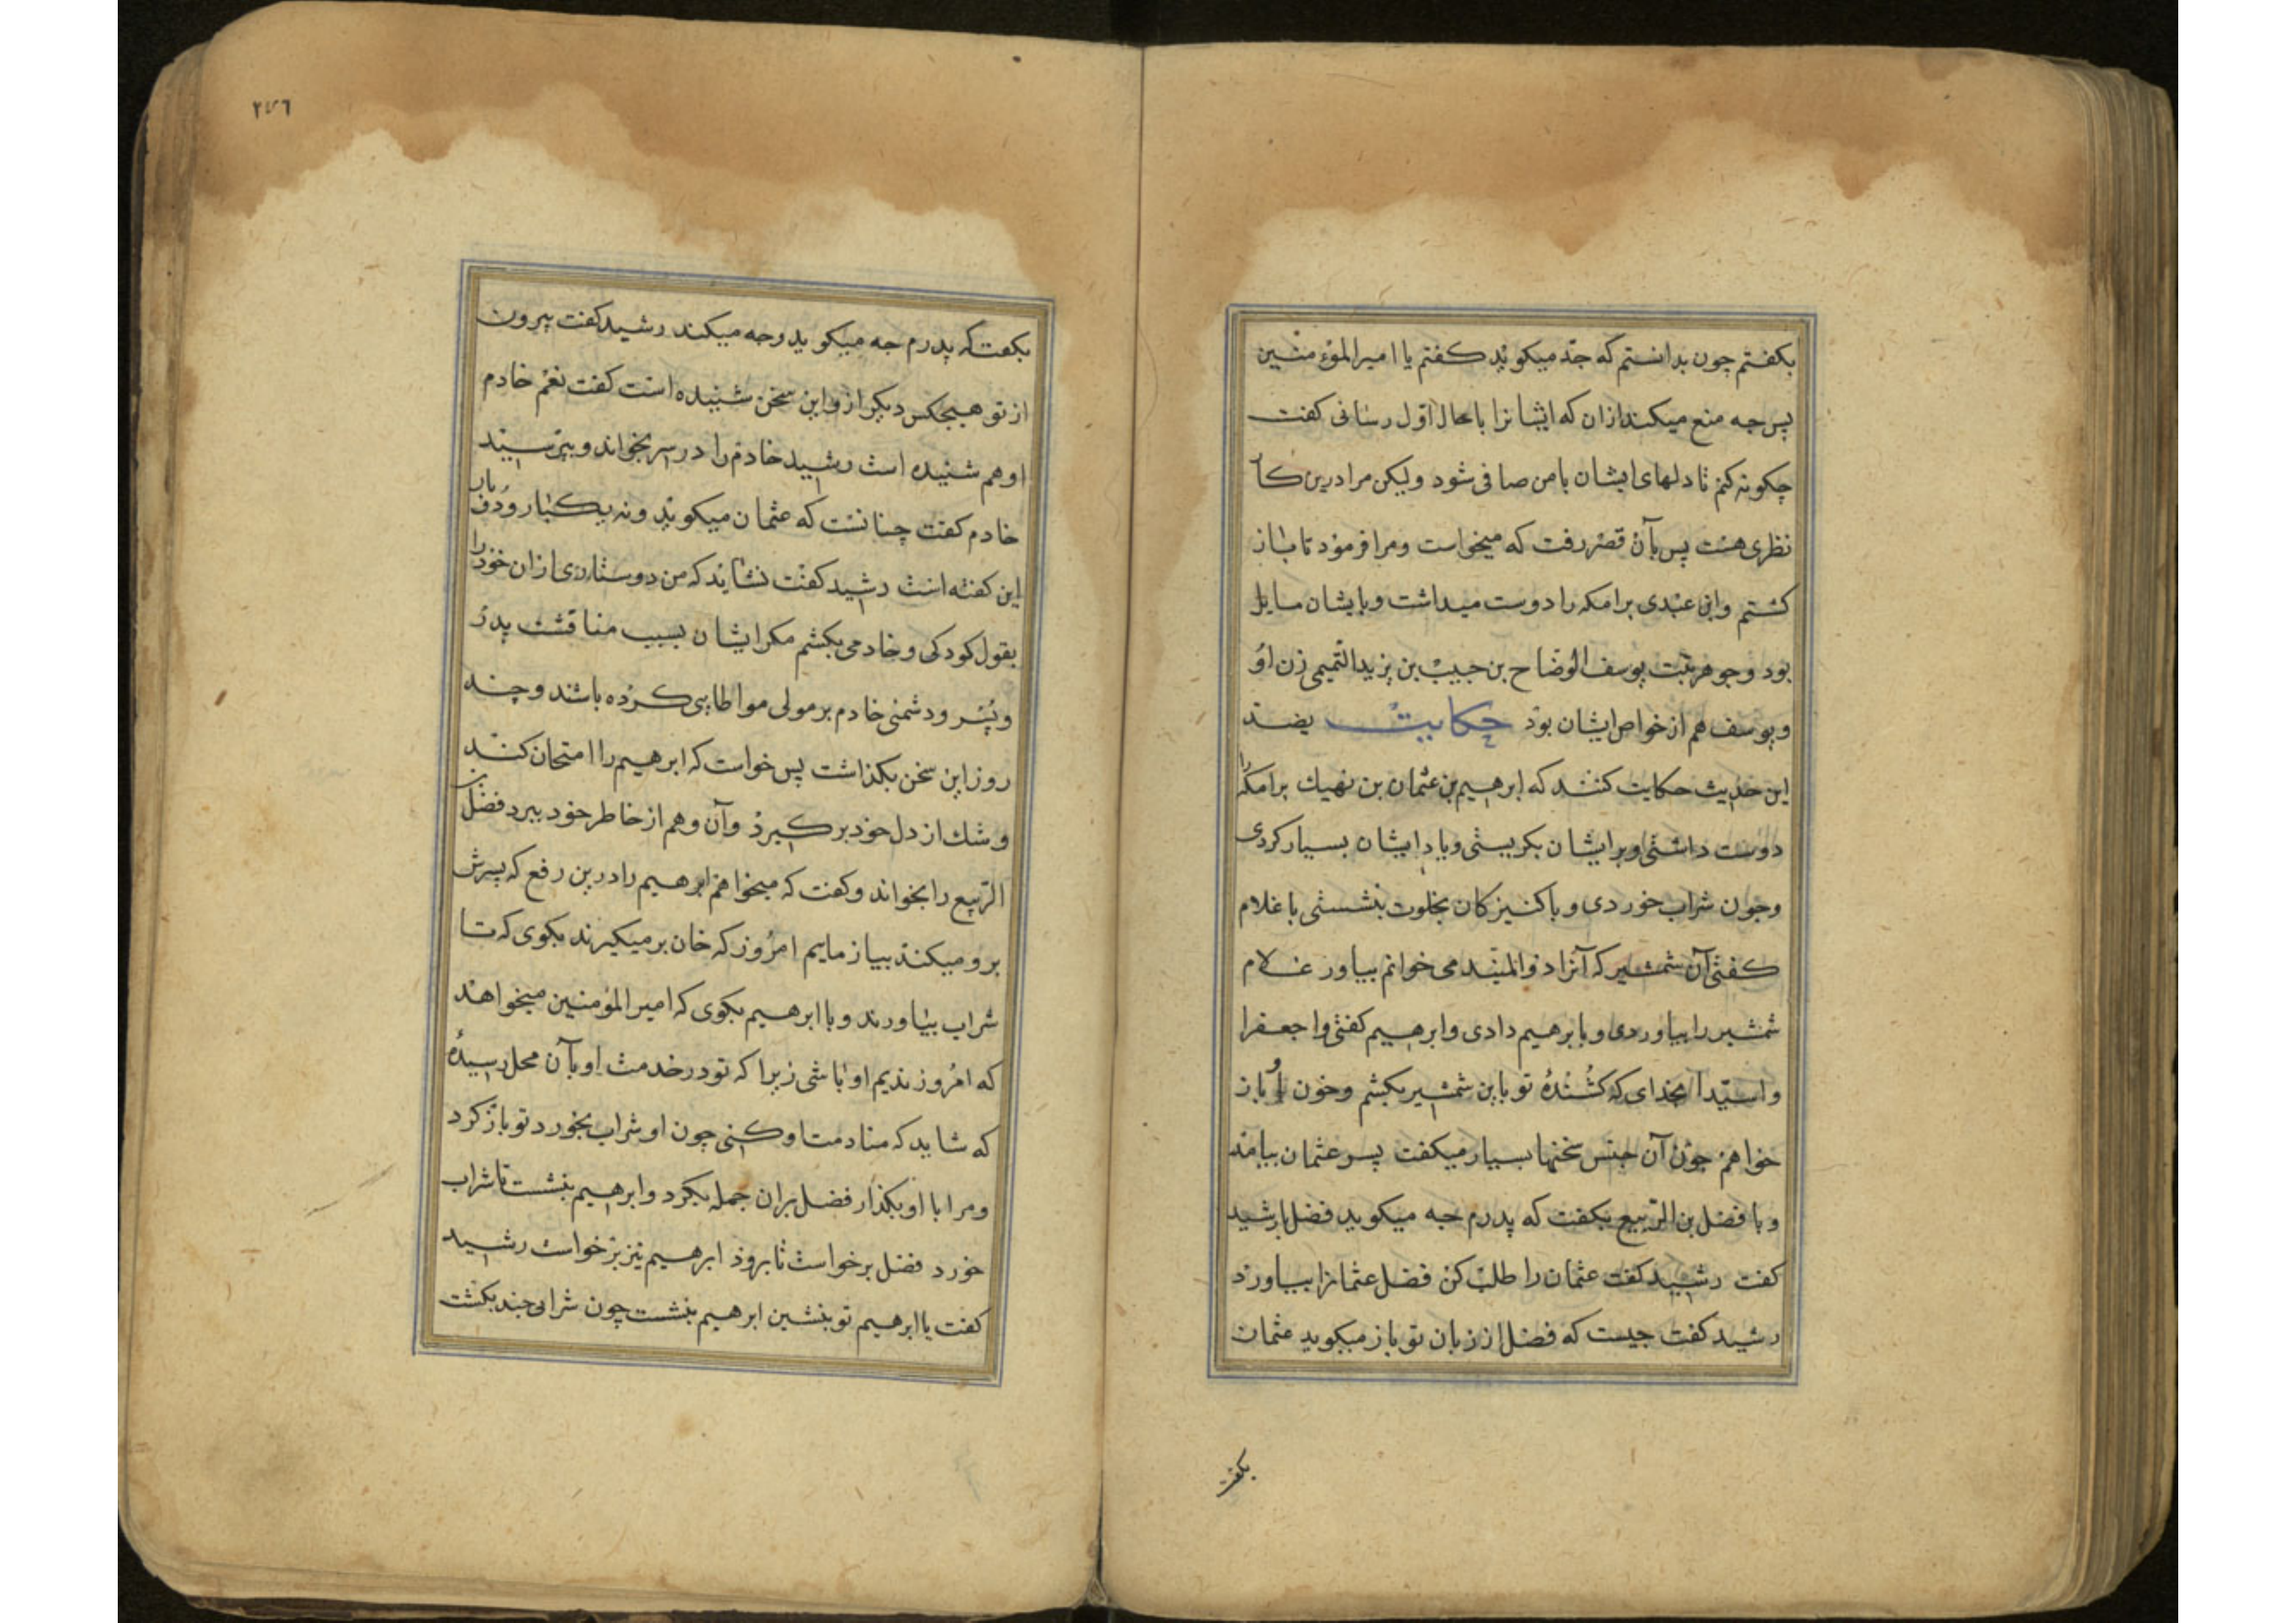 بکفتم چون بدانستم که جه میکوید کفتم یا امیرالمؤمنین
پس جه منع میکند ازان که ایشانرا باحال اول رسانی کفت
چکونه کنم تا دلهای ایشان با من صافی شود ولیکن مرا درین کار
نظری هست پس بآن قصر رفت که میخواست ومرا فرمود تا باز
کشتم واین عبدی برامکه را دوست میداشت وبایشان مایل
بود وجوهر بنت یوسف الوضاح بن حبیب بن یزید التمیمی زن او
ویوسف هم از خواص ایشان بود حکایت بضد
این حدیث حکایت کنند که ابرهیم بن عثمان بن نهیك برامکه را
دوست داشتی وبرایشان بکریستی ویاد ایشان بسیار کردی
وجون شراب خوردی و باکنیزکان بخلوت بنشستی با غلام
کفتی آن شمشیر که آنرا ذوالمنیه می خوانم بیاور غلام
شمشیر را بیاوردی و بابرهیم دادی وابرهیم کفتی وا جعفرا
واسیدا بخدای که کشندهٔ تو باین شمشیر بکشم وخون او باز
خواهم چون آن جنس سخنها بسیار میکفت پسر عثمان بیامد
و با فضل بن الربیع بکفت که پدرم جه میکوید فضل با رشید
کفت رشید کفت عثمان را طلب کن فضل عثمانرا بیاورد
رشید کفت جیست که فضل از زبان تو باز میکوید عثمان
بکفت
۲۴۶
بکفت که پدرم جه میکوید وجه میکند رشید کفت بیرون
از تو هیجکس دیکر ازو این سخن شنیده است کفت نعم خادم
او هم شنیده است رشید خادم را در سر بخواند وبپرسید
خادم کفت چنانست که عثمان میکوید ونه یکبار ودو بار
این کفته است رشید کفت نشاید که من دوستاری ازان خود را
بقول کودکی و خادمی بکشم مکر ایشان بسبب مناقشت پدر
وپسر ودشمنی خادم بر مولی مواطایی کرده باشند و چند
روز این سخن بکذاشت پس خواست که ابرهیم را امتحان کند
وشك از دل خود برکیرد وآن وهم از خاطر خود ببرد فضل بن
الربیع را بخواند وکفت که میخواهم ابرهیم را درین رفع که پسرش
برو میکند بیازمایم امروز که خان برمیکیرند بکوی که تا
شراب بیاورند و با ابرهیم بکوی که امیرالمؤمنین میخواهد
که امروز ندیم او باشی زیرا که تو در خدمت او بآن محل رسیدهٔ
که شاید که منادمت او کنی چون او شراب بخورد تو باز کرد
ومرا با او بکذار فضل بران جمله بکرد وابرهیم بنشست تا شراب
خورد فضل برخواست تا برود ابرهیم نیز برخواست رشید
کفت یا ابرهیم تو بنشین ابرهیم بنشست چون شرابی چند بکشت